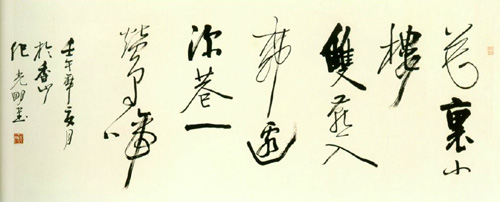 花裏小
樓
雙燕入
柳邊
深巷一
鶯啼
壬午年亥月
於香山
纪光明书